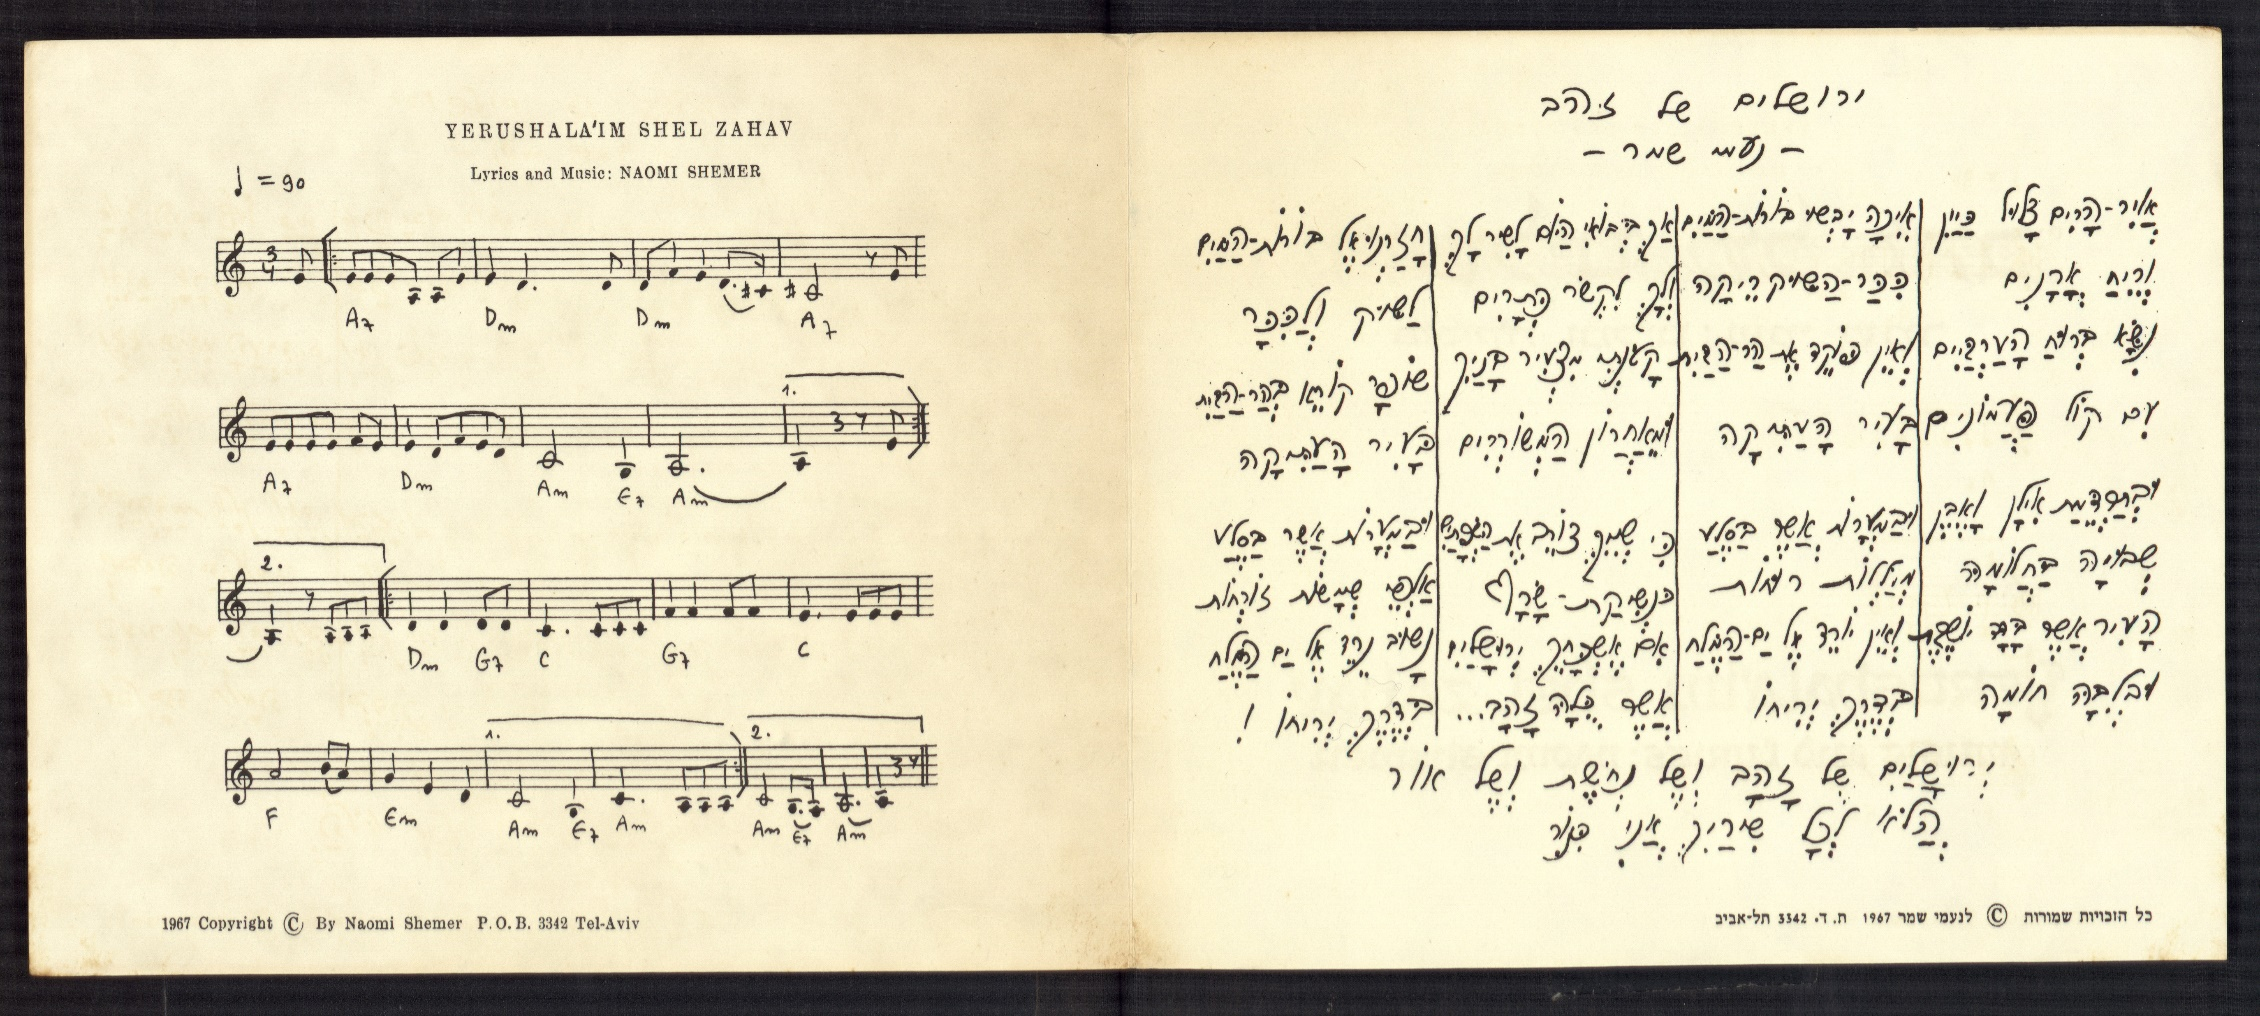 YERUSHALA'IM SHEL ZAHAV
Lyrics and Music: NAOMI SHEMER
♩ = 90
3/4
A7 Dm Dm A7
1.
A7 Dm Am E7 Am
2.
Dm G7 C G7 C
1. 2.
F Em Am E7 Am Am E7 Am
1967 Copyright © By Naomi Shemer P.O.B. 3342 Tel-Aviv
ירושלים של זהב
- נעמי שמר -
אֲוִיר-הָרִים צָלוּל כַּיַּיִן
וְרֵיחַ אֳרָנִים
נִשָּׂא בְּרוּחַ הָעַרְבַּיִים
עִם קוֹל פַּעֲמוֹנִים
וּבְתַרְדֵּמַת אִילָן וָאֶבֶן
שְׁבוּיָה בַּחֲלוֹמָהּ
הָעִיר אֲשֶׁר בָּדָד יוֹשֶׁבֶת
וּבְלִבָּהּ חוֹמָה
אֵיכָה יָבְשׁוּ בּוֹרוֹת-הַמַּיִם
כִּכַּר-הַשּׁוּק רֵיקָה
וְאֵין פּוֹקֵד אֶת הַר-הַבַּיִת
בָּעִיר הָעַתִּיקָה
וּבַמְּעָרוֹת אֲשֶׁר בַּסֶּלַע
מְיַלְּלוֹת רוּחוֹת
וְאֵין יוֹרֵד אֶל יַם-הַמֶּלַח
בְּדֶרֶךְ יְרִיחוֹ
אַךְ בְּבוֹאִי הַיּוֹם לָשִׁיר לָךְ
וְלָךְ לִקְשֹׁר כְּתָרִים
קָטֹנְתִּי מִצְּעִיר בָּנַיִךְ
וּמֵאַחֲרוֹן הַמְּשׁוֹרְרִים
כִּי שְׁמֵךְ צוֹרֵב אֶת הַשְּׂפָתַיִם
כִּנְשִׁיקַת-שָׂרָף
אִם אֶשְׁכָּחֵךְ יְרוּשָׁלַיִם
אֲשֶׁר כֻּלָּהּ זָהָב...
חָזַרְנוּ אֶל בּוֹרוֹת-הַמַּיִם
לַשּׁוּק וְלַכִּכָּר
שׁוֹפָר קוֹרֵא בְּהַר-הַבַּיִת
בָּעִיר הָעַתִּיקָה
וּבַמְּעָרוֹת אֲשֶׁר בַּסֶּלַע
אַלְפֵי שְׁמָשׁוֹת זוֹרְחוֹת
נָשׁוּב נֵרֵד אֶל יַם הַמֶּלַח
בְּדֶרֶךְ יְרִיחוֹ !
יְרוּשָׁלַיִם שֶׁל זָהָב וְשֶׁל נְחֹשֶׁת וְשֶׁל אוֹר
הֲלֹא לְכָל שִׁירַיִךְ אֲנִי כִּנּוֹר
כל הזכויות שמורות © לנעמי שמר 1967 ת.ד. 3342 תל-אביב